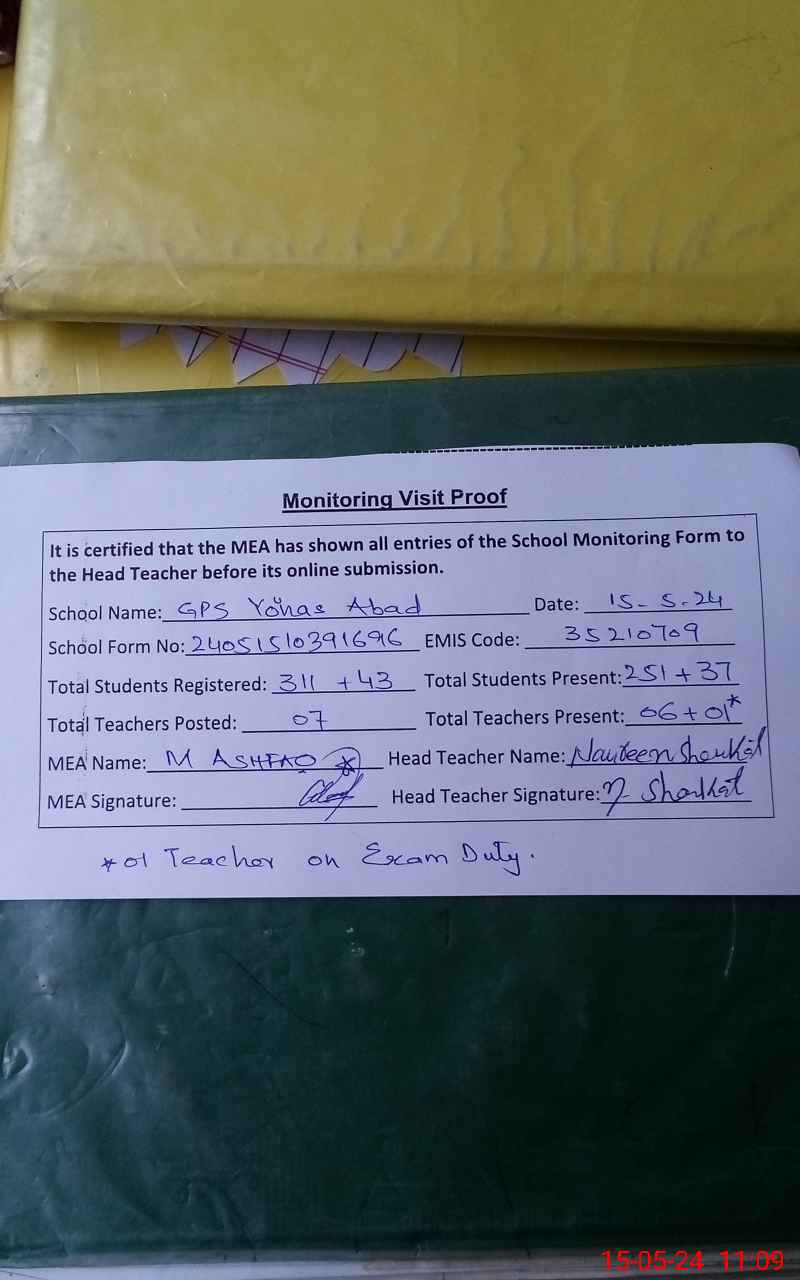 Monitoring Visit Proof
It is certified that the MEA has shown all entries of the School Monitoring Form to
the Head Teacher before its online submission.
School Name: GPS Yohas Abad Date: 15-5-24
School Form No: 24051510391696 EMIS Code: 35210709
Total Students Registered: 311 + 43 Total Students Present: 251 + 37
Total Teachers Posted: 07 Total Teachers Present: 06 + 01*
MEA Name: M ASHFAQ Head Teacher Name: Naureen Shaukat
MEA Signature: Head Teacher Signature: N Shaukat
* 01 Teacher on Exam Duty.
15-05-24 11:09